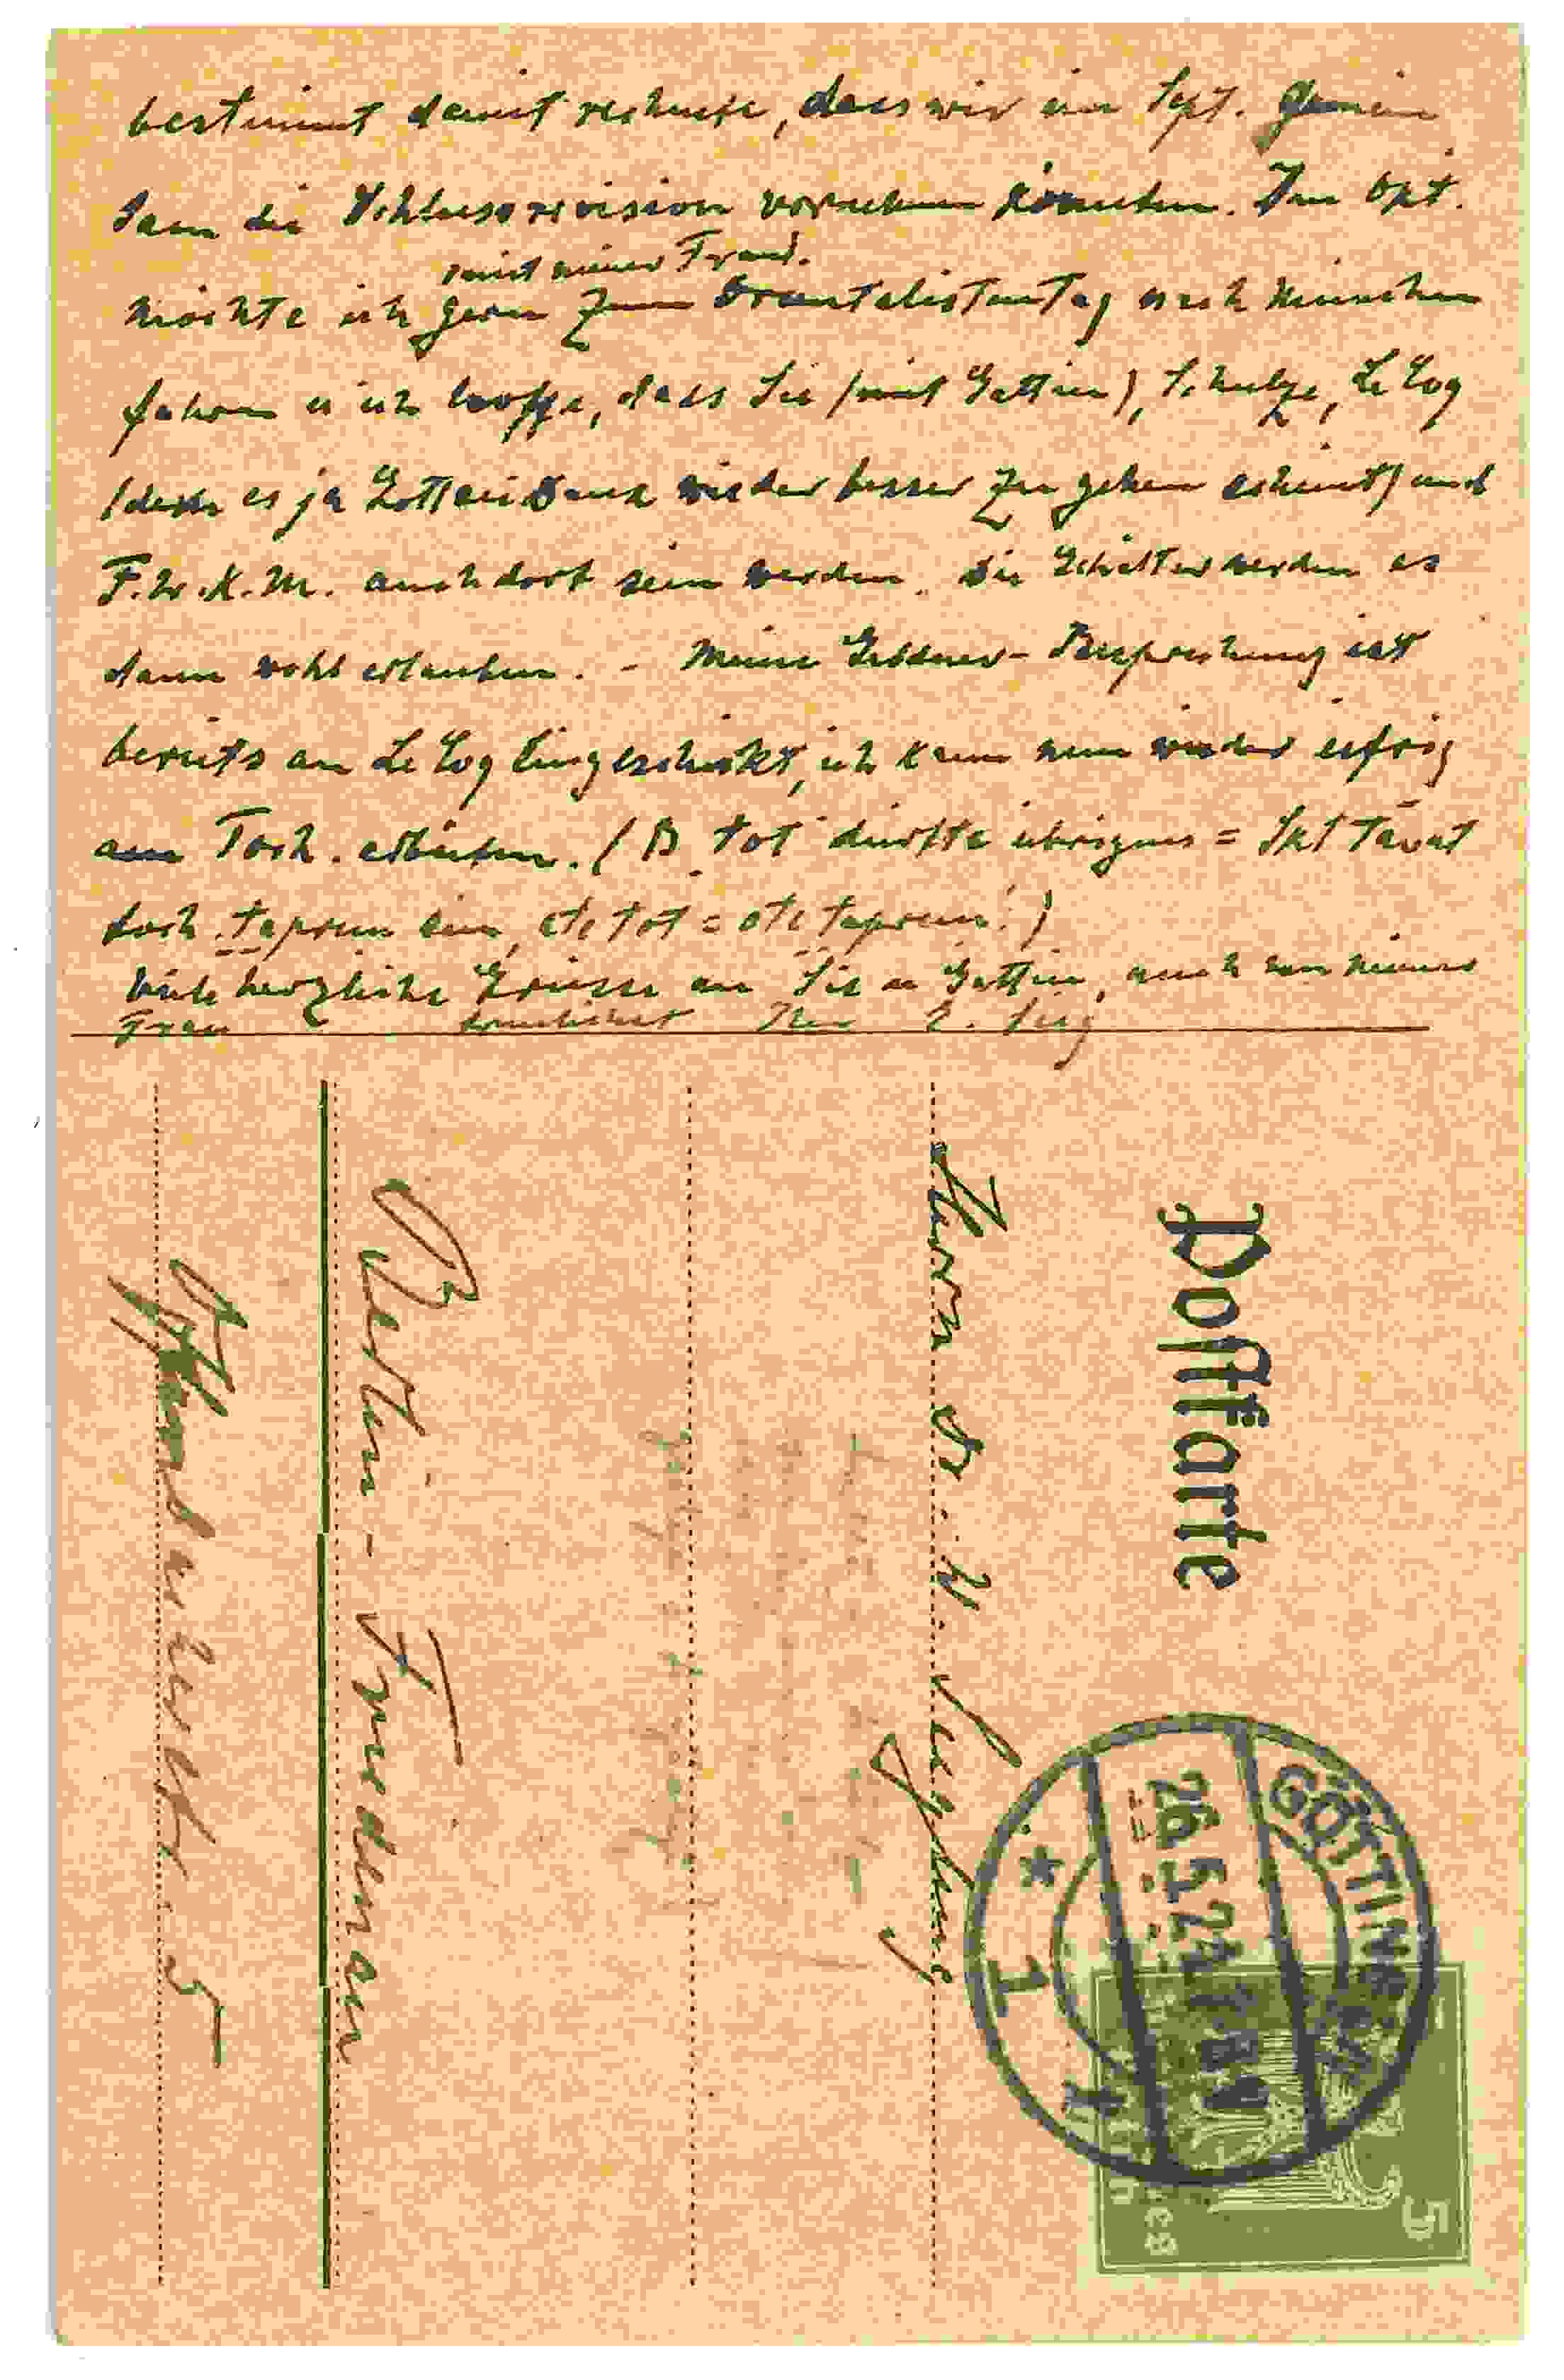 bestimmt damit rechnete, dass wir im Sept. gemein
sam die Schlussrevision vornehmen könnten. Im Okt.
mit meiner Frau
möchte ich gern zum Orientalistentag nach München
fahren u ich hoffe, dass Sie (mit Gattin), Schulze, Le Coq
(dem es ja Gott sei Dank wieder besser zu gehen scheint) und
F.W.K.M. auch dort sein werden. Die Götter werden es
dann wohl erlauben. - Meine Besprechung ist
bereits an Le Coq eingeschickt, ich kann nun wieder eifrig
am Toch. arbeiten. (B tot dürfte übrigens = Skt tāvat
toch. täprem sein, ete tot = ote täprem!)
Viele herzliche Grüsse an Sie u Gattin, auch von meiner
Frau Ihr E. Sieg
Postkarte
Herrn Dr. W. Siegling
Berlin-Friedenau
5
GÖTTINGEN
26.5.24
* 1 *
5